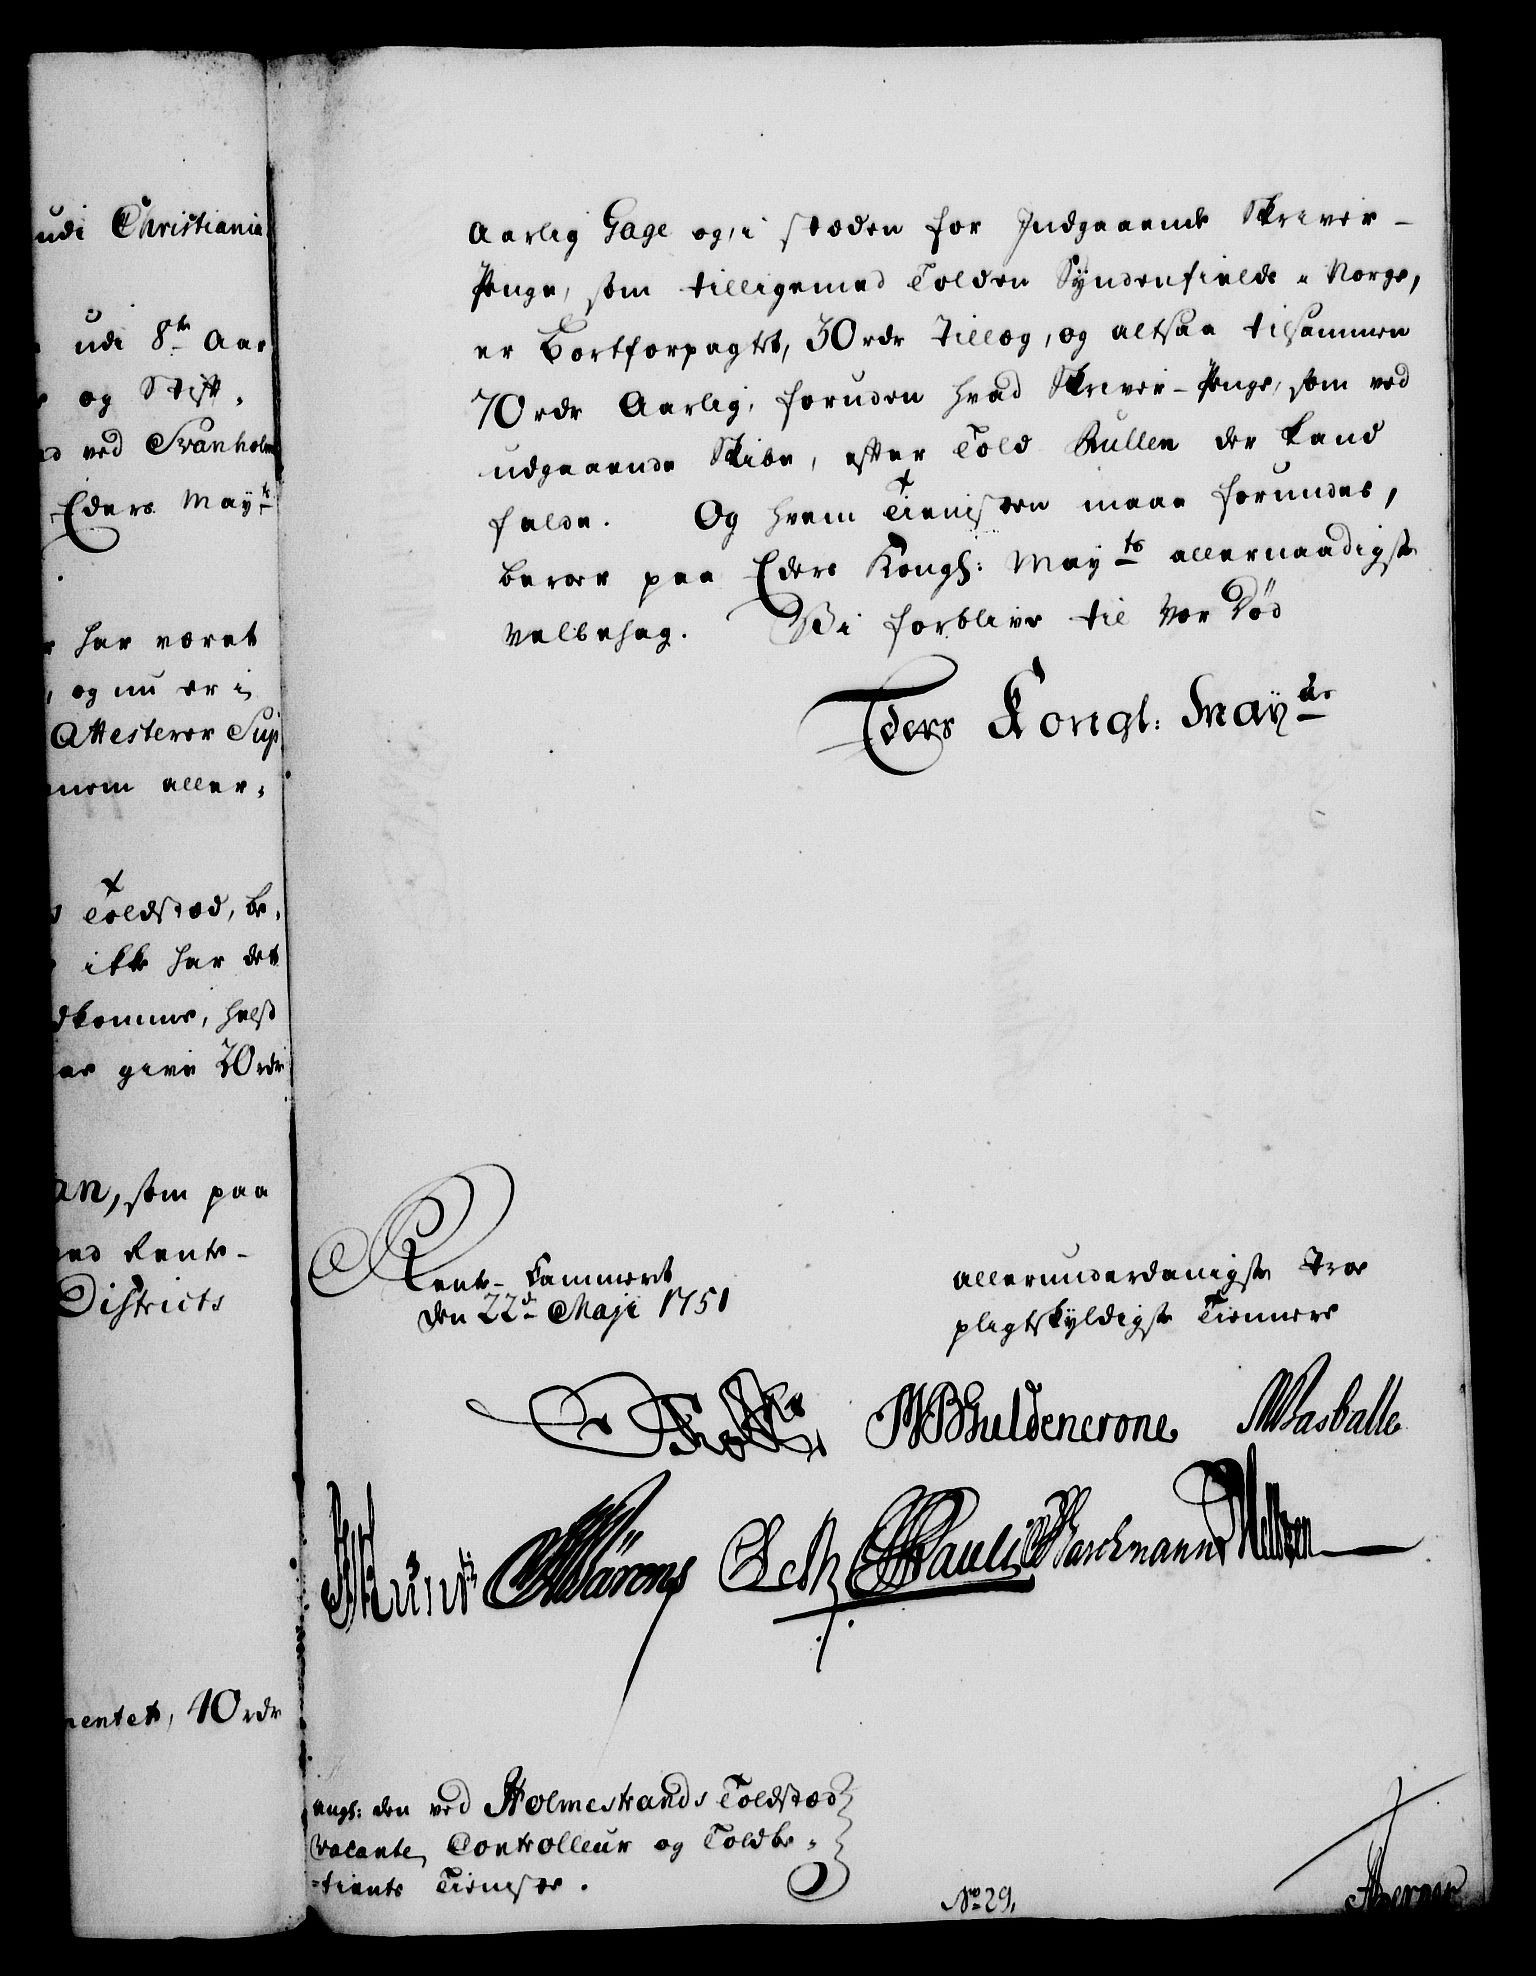 udi Christiania
udi 8te Aar
og Stift-
ved Svanholm
Eders Mayts
har været
, og nu er i
Attesterer Sup
aller-
Toldstæd, be-
ikke har det
dkomme, helst
give 20 rdr
an, som paa
Rente-
Districts
mentet, 40 rdr
Aarlig Gage og, i stæden for Indgaaende Skriver-
Penge, som tilligemed Tolden Syndenfields i Norge,
er Bortforpagtet, 30 rdr Tillæg, og altsaa tilsammen
70 rdr Aarlig, foruden hvad Skriver-Penge, som ved
udgaaende Skibe, efter Told Rullen der kand
falde. Og hvem Tienisten maae forundes,
beroer paa Eders Kongl: Mayts allernaadigste
Velbehag. Vi forblive til Vor Død
Eders Kongl: Mayts
Rente-Cammeret
den 22de Maji 1751
allerunderdanigste Troe
pligtskyldigste Tiennere
Guldencrone
Pauli
angl: den ved Holmestrands Toldstæd
vacante Controlleur og Toldbe-
-tiente Tieniste.
No 29.